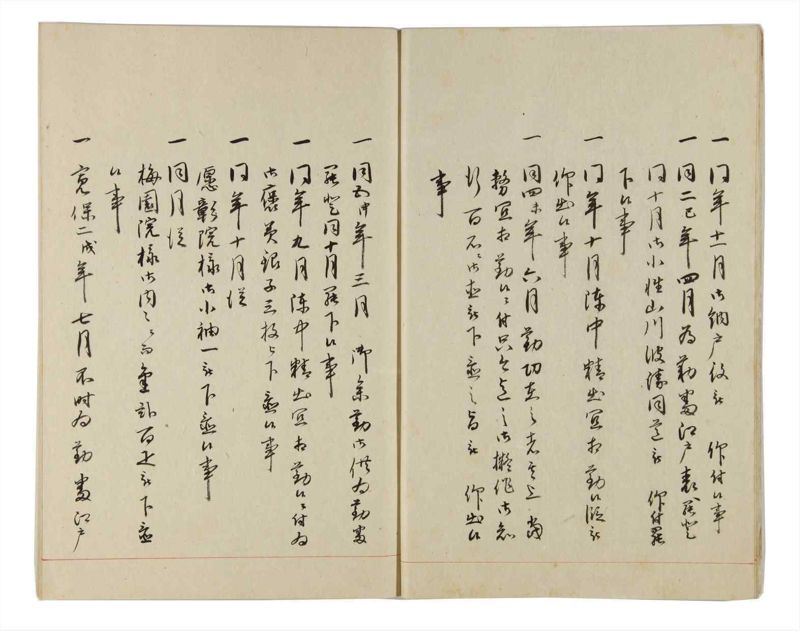 一同年十一月御納戸役被 仰付候事
一同二巳年四月為勤番江戸表罷登
同十月御小性山川波済同道被 仰付罷
下候事
一同年十月陳中精出宜相勤候段被
仰出候事
一同四未年六月勤功在之者其上当
勢宜相勤候付
百石御直被下置之旨被 仰出候
事
一同五申年三月 御参勤御供為勤番
罷登同十月罷下候事
一同年九月陳中精出宜相勤候付為
御褒美銀子三枚被下置候事
一同年十月従
愿彰院様御小袖一被下置候事
一同月従
梅園院様御内々而金弐百疋被下置
候事
一寛保二戌年七月不時為勤番江戸